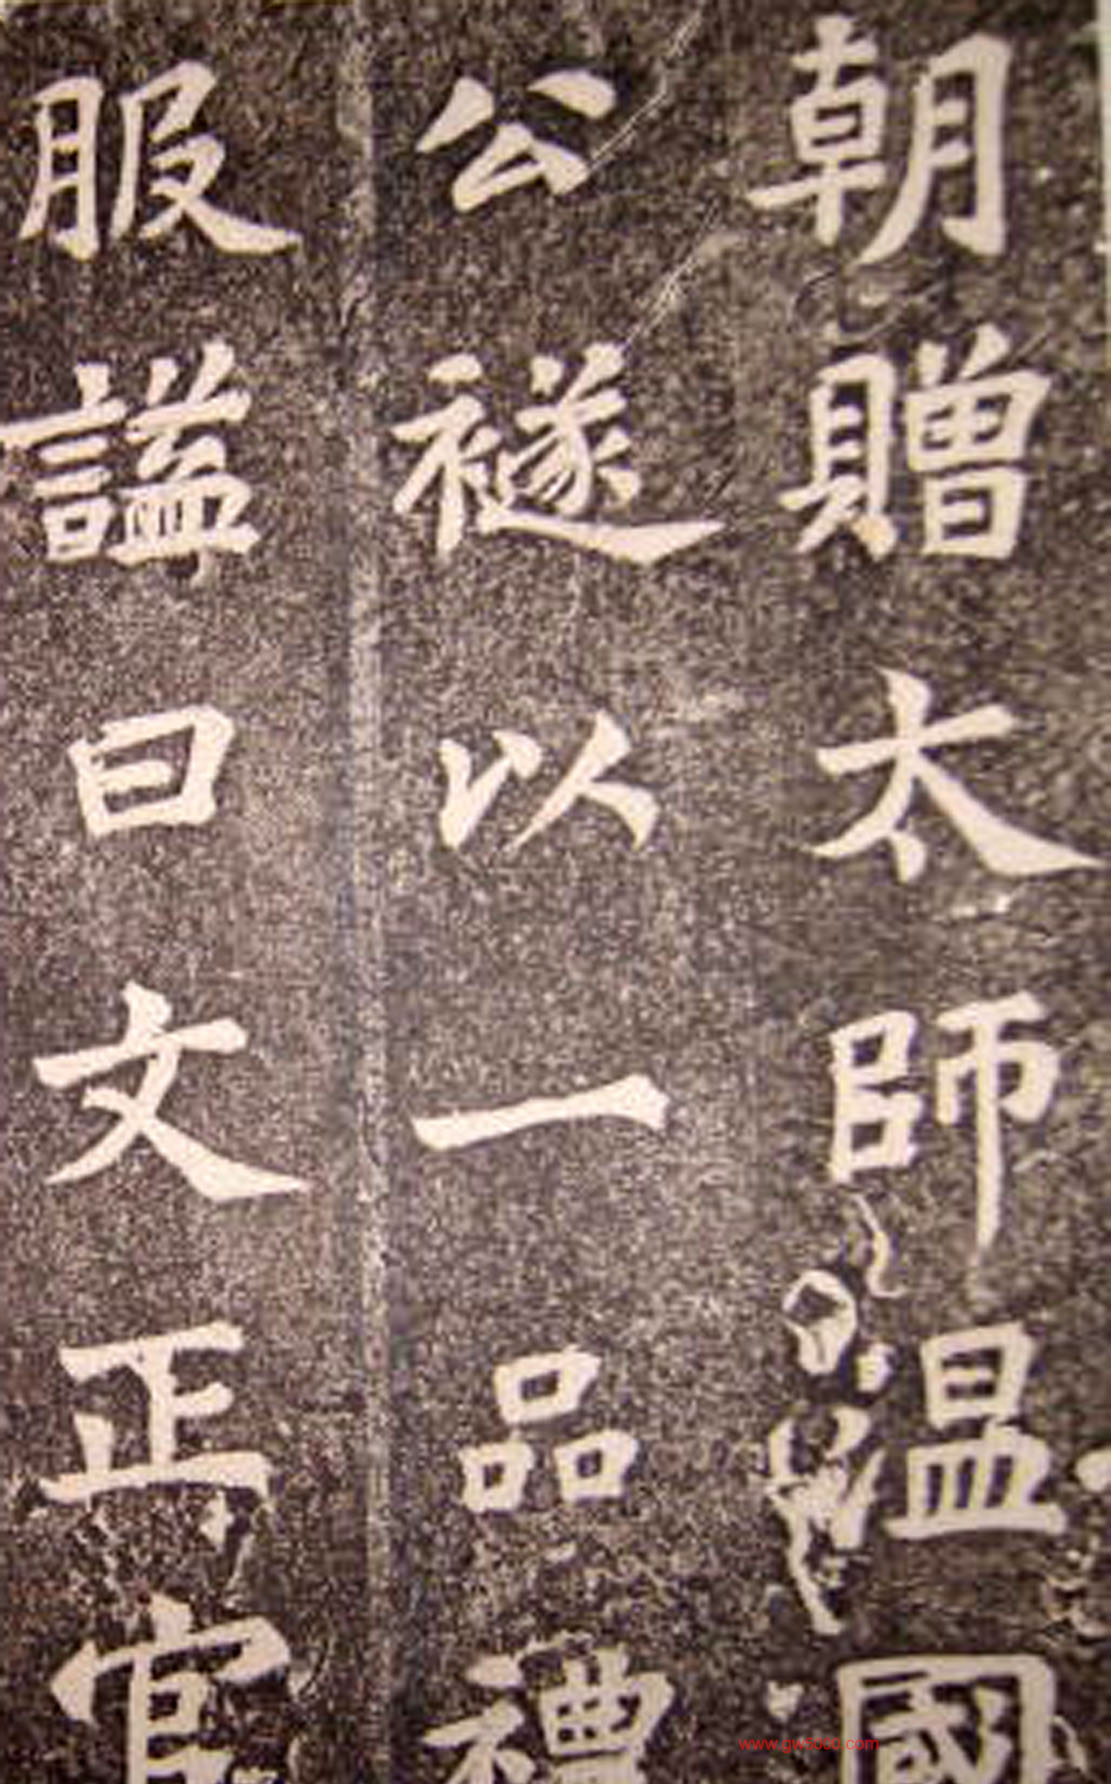 朝贈太師温國
公襚以一品禮
服謚曰文正官
www.gw5000.com